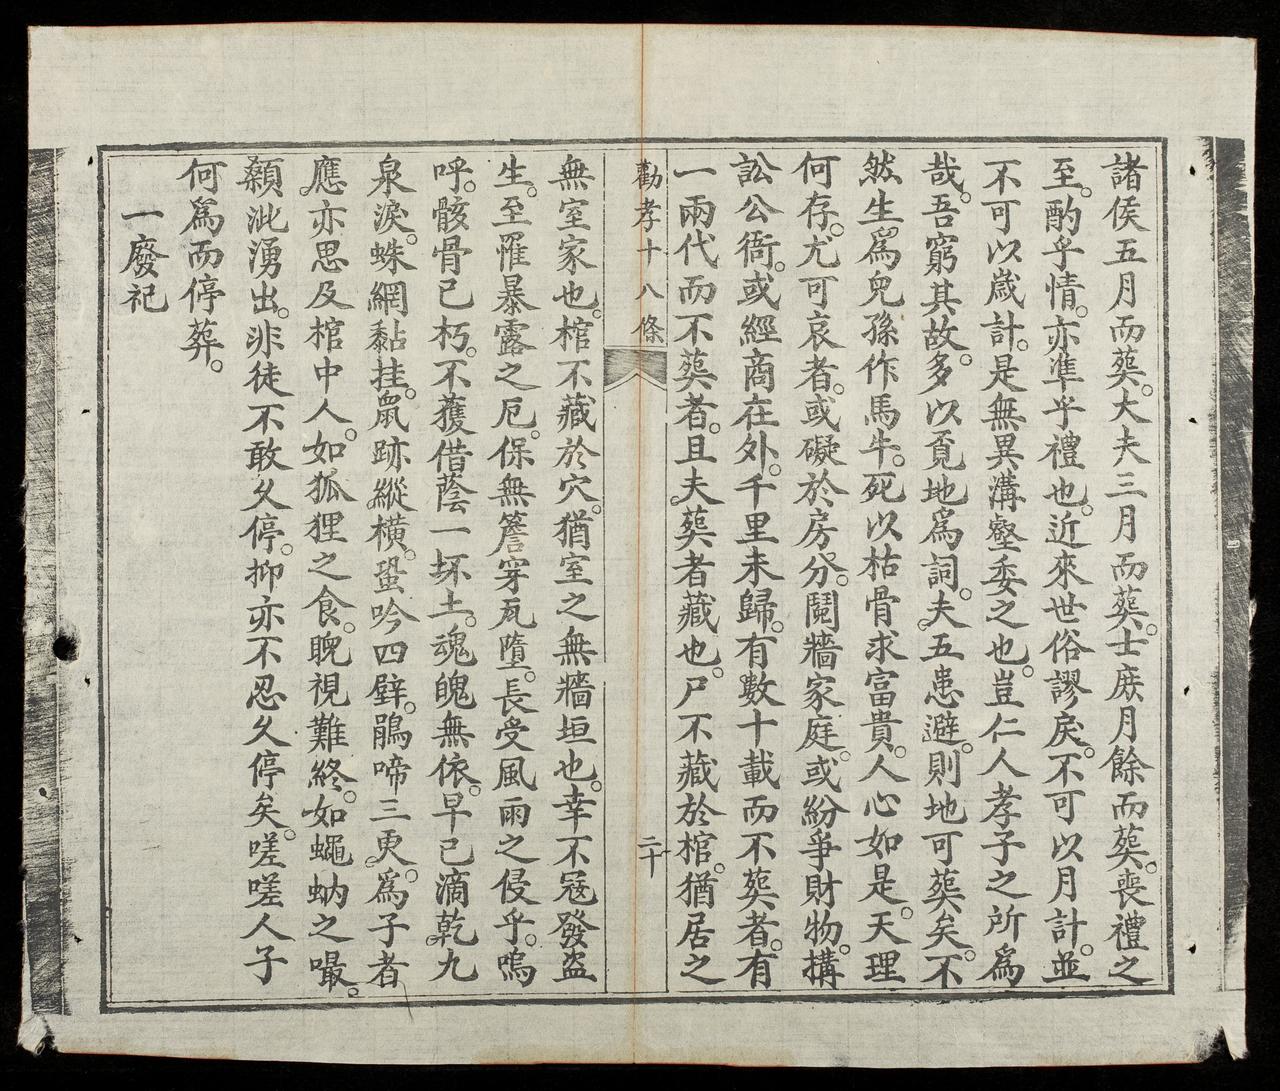 諸侯五月而葬。大夫三月而葬。士庶月餘而葬。喪禮之
至。酌乎情。亦準乎禮也。近來世俗謬戾。不可以月計。並
不可以歲計。是無異溝壑委之也。豈仁人孝子之所爲
哉。吾窮其故。多以覓地爲詞。夫五患避。則地可葬矣。不
然生爲兒孫作馬牛。死以枯骨求富貴。人心如是。天理
何存。尤可哀者。或礙於房分。鬩牆家庭。或紛爭財物。搆
訟公衙。或經商在外。千里未歸。有數十載而不葬者。有
一兩代而不葬者。且夫葬者藏也。尸不藏於棺。猶居之
勸孝十八條
二十
無室家也。棺不藏於穴。猶室之無牆垣也。幸不冦發盗
生。至罹暴露之厄。保無簷穿瓦墮。長受風雨之侵乎。嗚
呼。骸骨已朽。不獲借蔭一抔土。魂魄無依。早已滴乾九
泉淚。蛛網黏挂。鼠跡縱橫。蛩吟四壁。鵑啼三更。爲子者
應亦思及棺中人。如狐狸之食。睨視難終。如蠅蚋之嘬。
顙泚湧出。非徒不敢久停。抑亦不忍久停矣。嗟嗟人子
何爲而停葬。
一廢祀